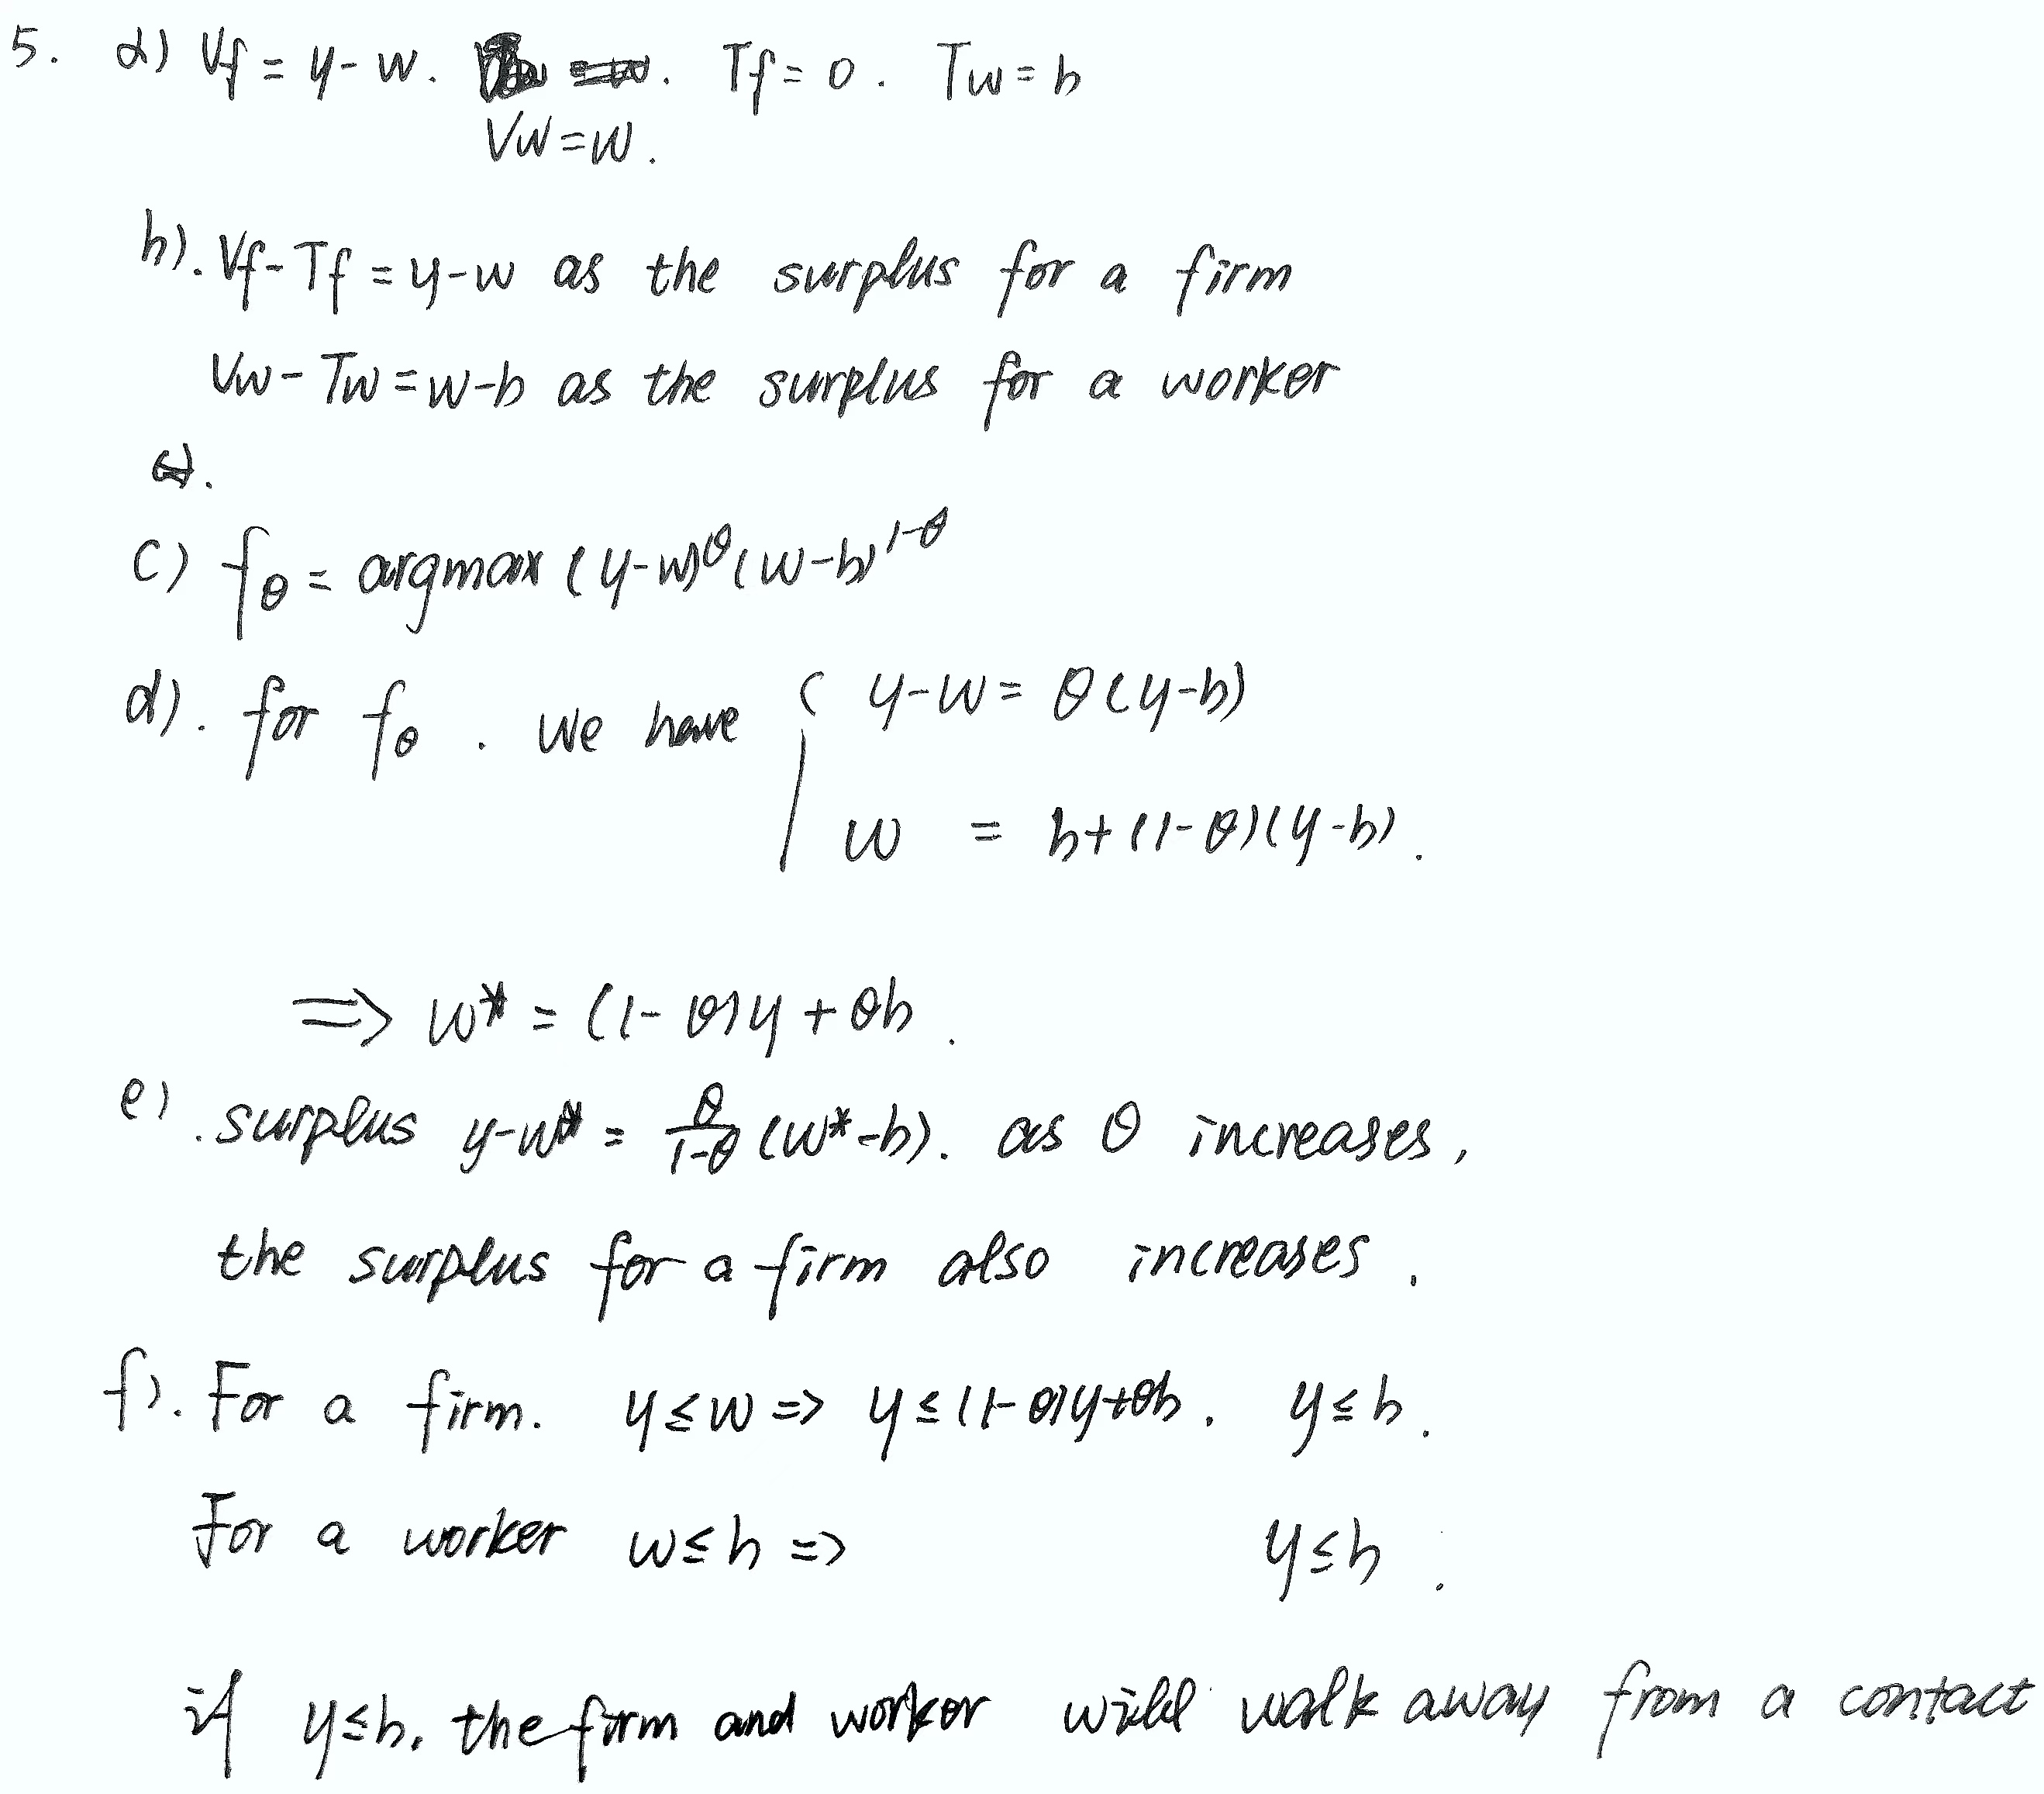 5. a) Vf = y - w. Tf = 0. Tw = b
Vw = w.
b). Vf - Tf = y - w as the surplus for a firm
Vw - Tw = w - b as the surplus for a worker
c) fθ = argmax (y-w)^θ (w-b)^1-θ
d). for fθ. we have { y - w = θ(y-b)
w = b + (1-θ)(y-b).
=> w* = (1-θ)y + θb.
e). surplus y - w* = θ/1-θ (w* - b). as θ increases,
the surplus for a firm also increases.
f). For a firm. y ≤ w => y ≤ (1-θ)y + θb. y ≤ b.
For a worker w ≤ b => y ≤ b.
if y ≤ b, the firm and worker will walk away from a contact